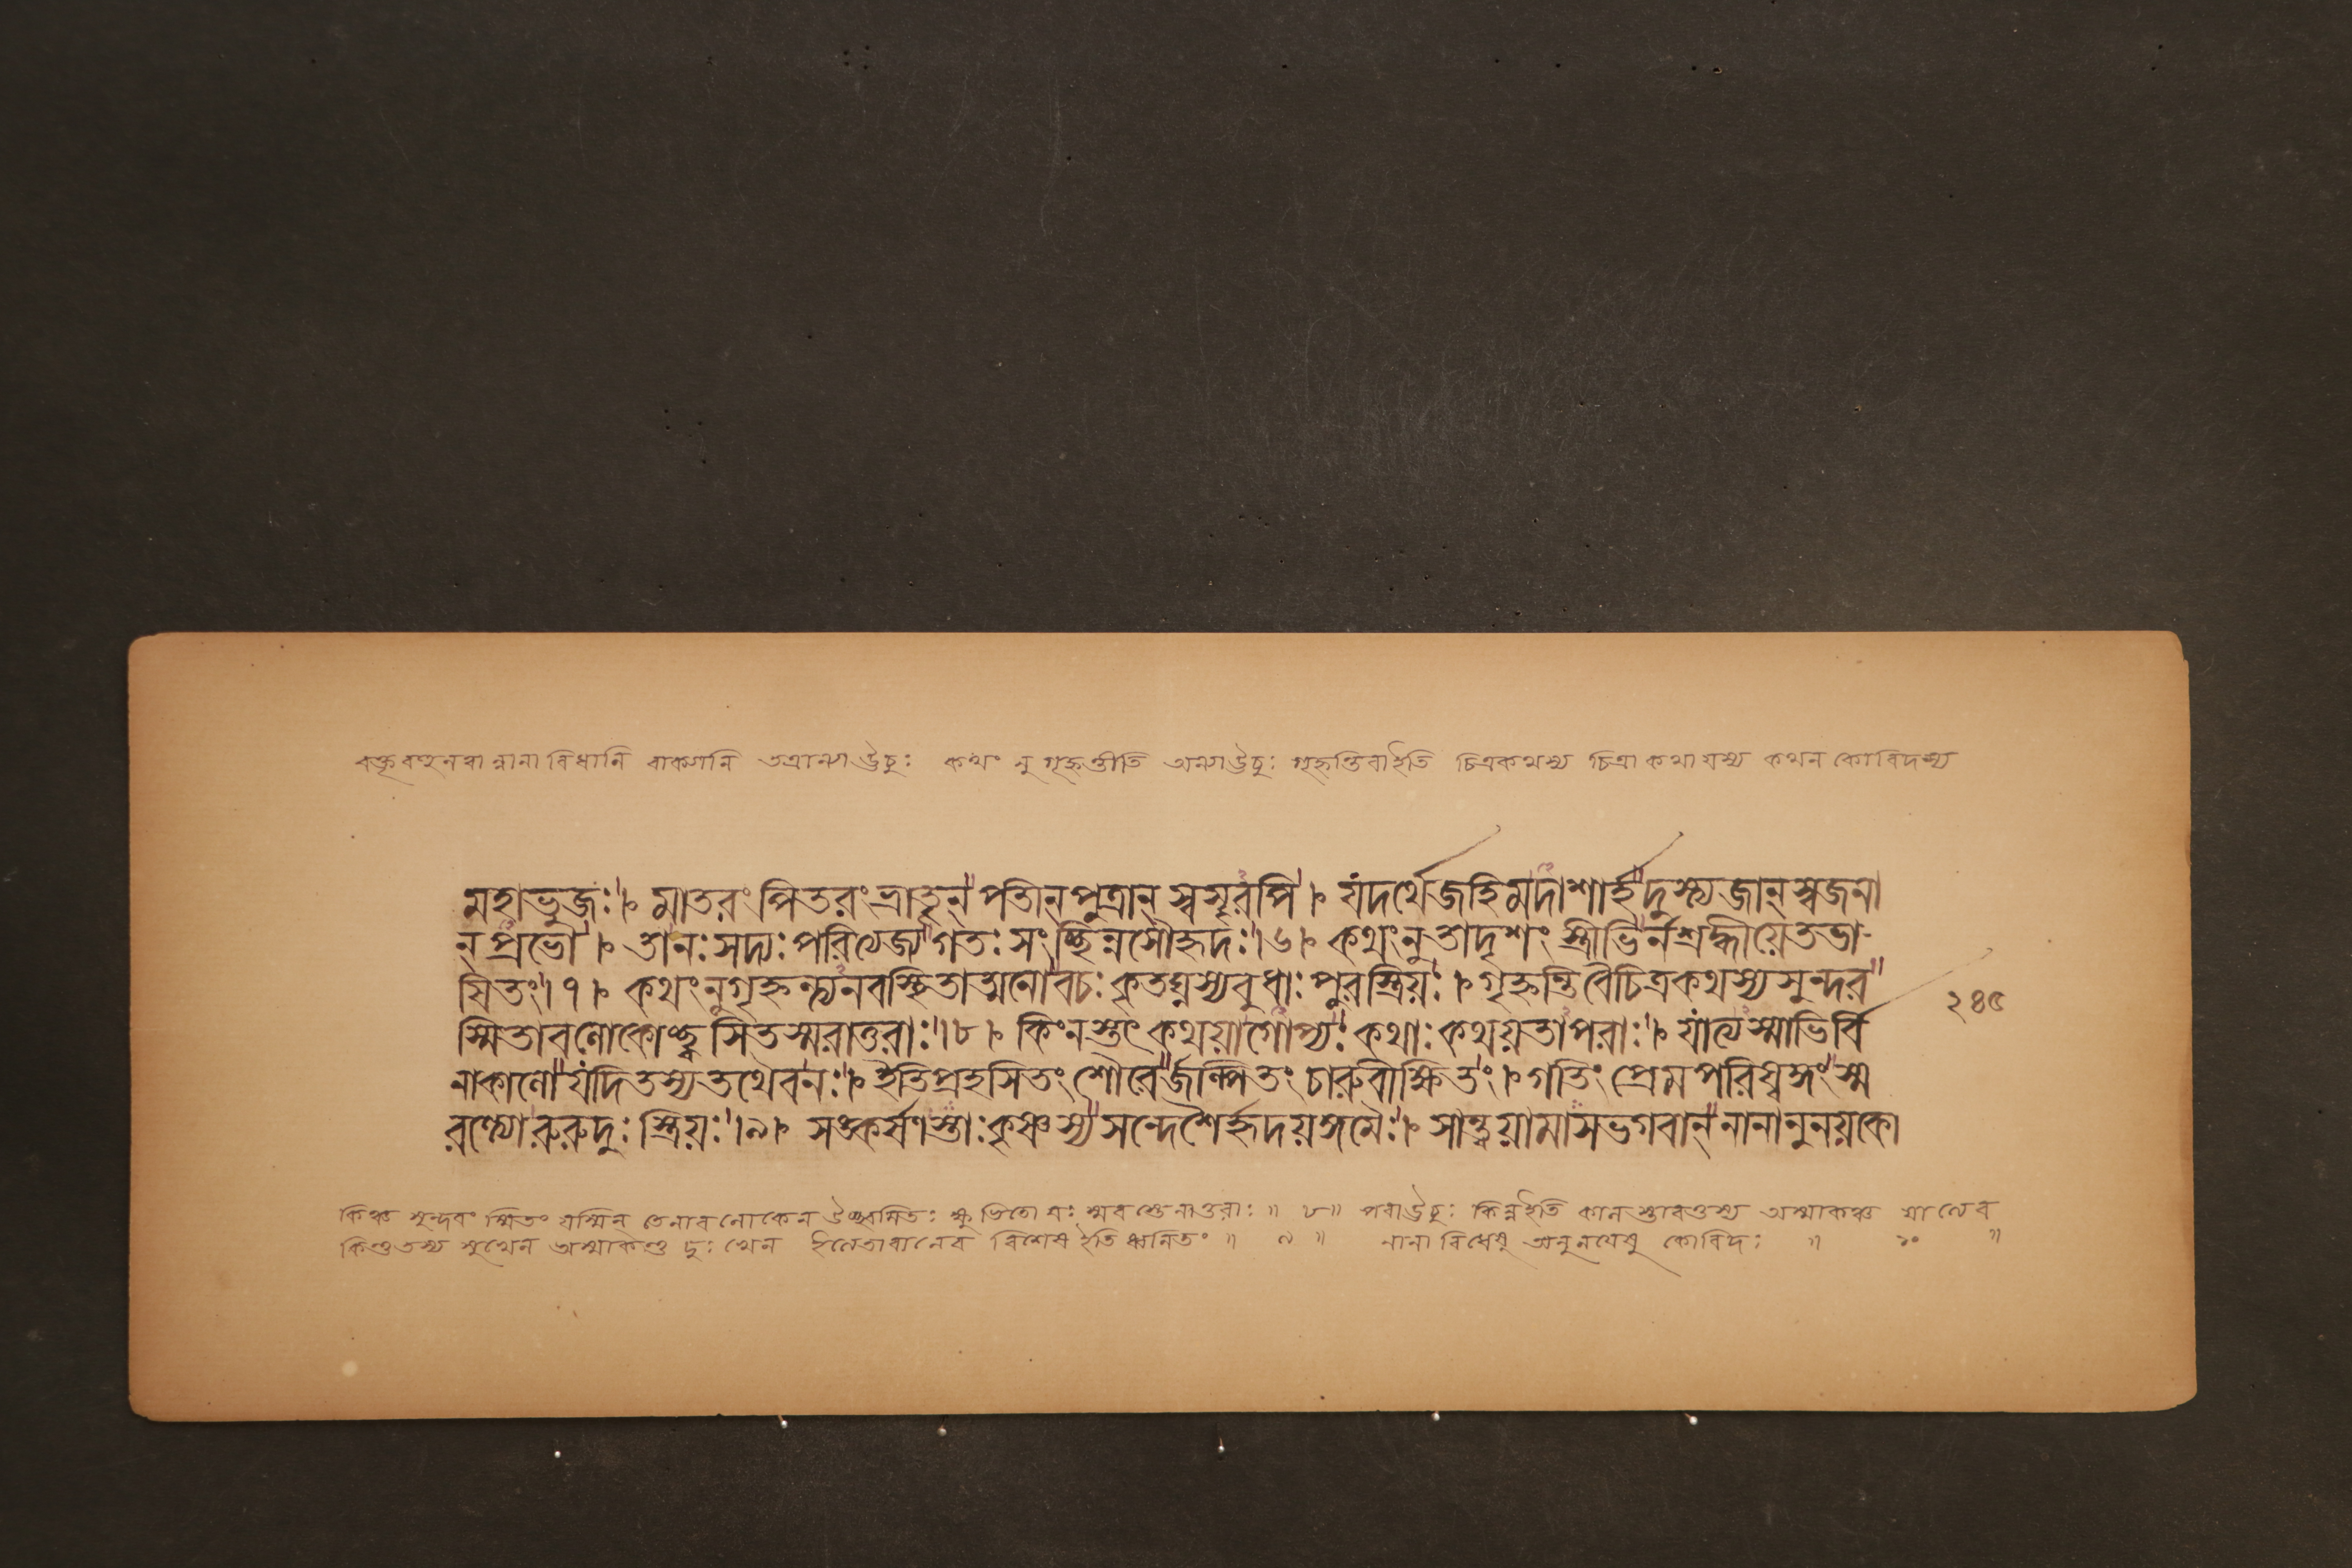 বক্তৃবহুনবা ন্নানাবিধানি বাক্যানি তত্রান্যাউচুঃ কথং নু গৃহ্ণন্তীতি অন্যাউচুঃ গৃহ্ণন্তিবাইতি চিত্রকথস্য চিত্রা কথা যস্য কথন কোবিদস্য
মহাভুজঃ। মাতরং পিতরং ভ্রাতৄন্ পতীন্পুত্রান্ স্বসৄরপি। যদর্থেজহিমদাশার্হদুস্ত্যজান্স্বজনা
ন্ প্রভো। তানঃসদ্যঃপরিত্যেজ্যগতঃ সংচ্ছিন্নসৌহৃদঃ।৬। কথংনুতাদৃশং স্ত্রীভির্নশ্রদ্ধীয়েতভা-
ষিতং।৭। কথংনুগৃহ্ণন্ত্যনবস্থিতাত্মনোবচঃ কৃতঘ্নস্যবুধাঃ পুরস্ত্রিয়ঃ। গৃহ্ণন্তিবৈচিত্রকথস্যসুন্দর
স্মিতাবলোকোচ্ছ্বসিতস্মরাতুরাঃ।৮। কিংনস্তৎ কথয়াগোপ্যঃ কথাঃ কথয়তাপরাঃ। যাত্যস্মাভির্বি
নাকালো যদিতস্যতথৈবনঃ। ইতিপ্রহসিতং শৌরের্জল্পিতং চারুবীক্ষিতং। গতিং প্রেমপরিষ্বঙ্গং স্ম
রন্ত্যোরুরুদুঃ স্ত্রিয়ঃ।৯। সঙ্কর্ষণস্তাঃকৃষ্ণস্যসন্দেশৈর্হৃদয়ঙ্গমৈঃ। সান্ত্বয়ামাসভগবান্নানানুনয়কো
২৪৫
কিঞ্চ সুন্দরং স্মিতং যস্মিন্ তেনাবলোকেন উচ্ছ্বসিতঃ ক্ষুভিতো যঃ স্মরস্তেনাতুরাঃ॥ ৮॥ পরাউচুঃ কিন্নইতি কালস্তাবত্তস্য অস্মাকঞ্চ যাত্যেব
কিন্তুতস্য সুখেন অস্মাকন্তু দুঃখেন ইত্যেতাবানেব বিশেষ ইতি ধ্বনিতং॥ ৯॥ নানাবিধেষু অনুনয়েষু কোবিদঃ॥ ১০॥